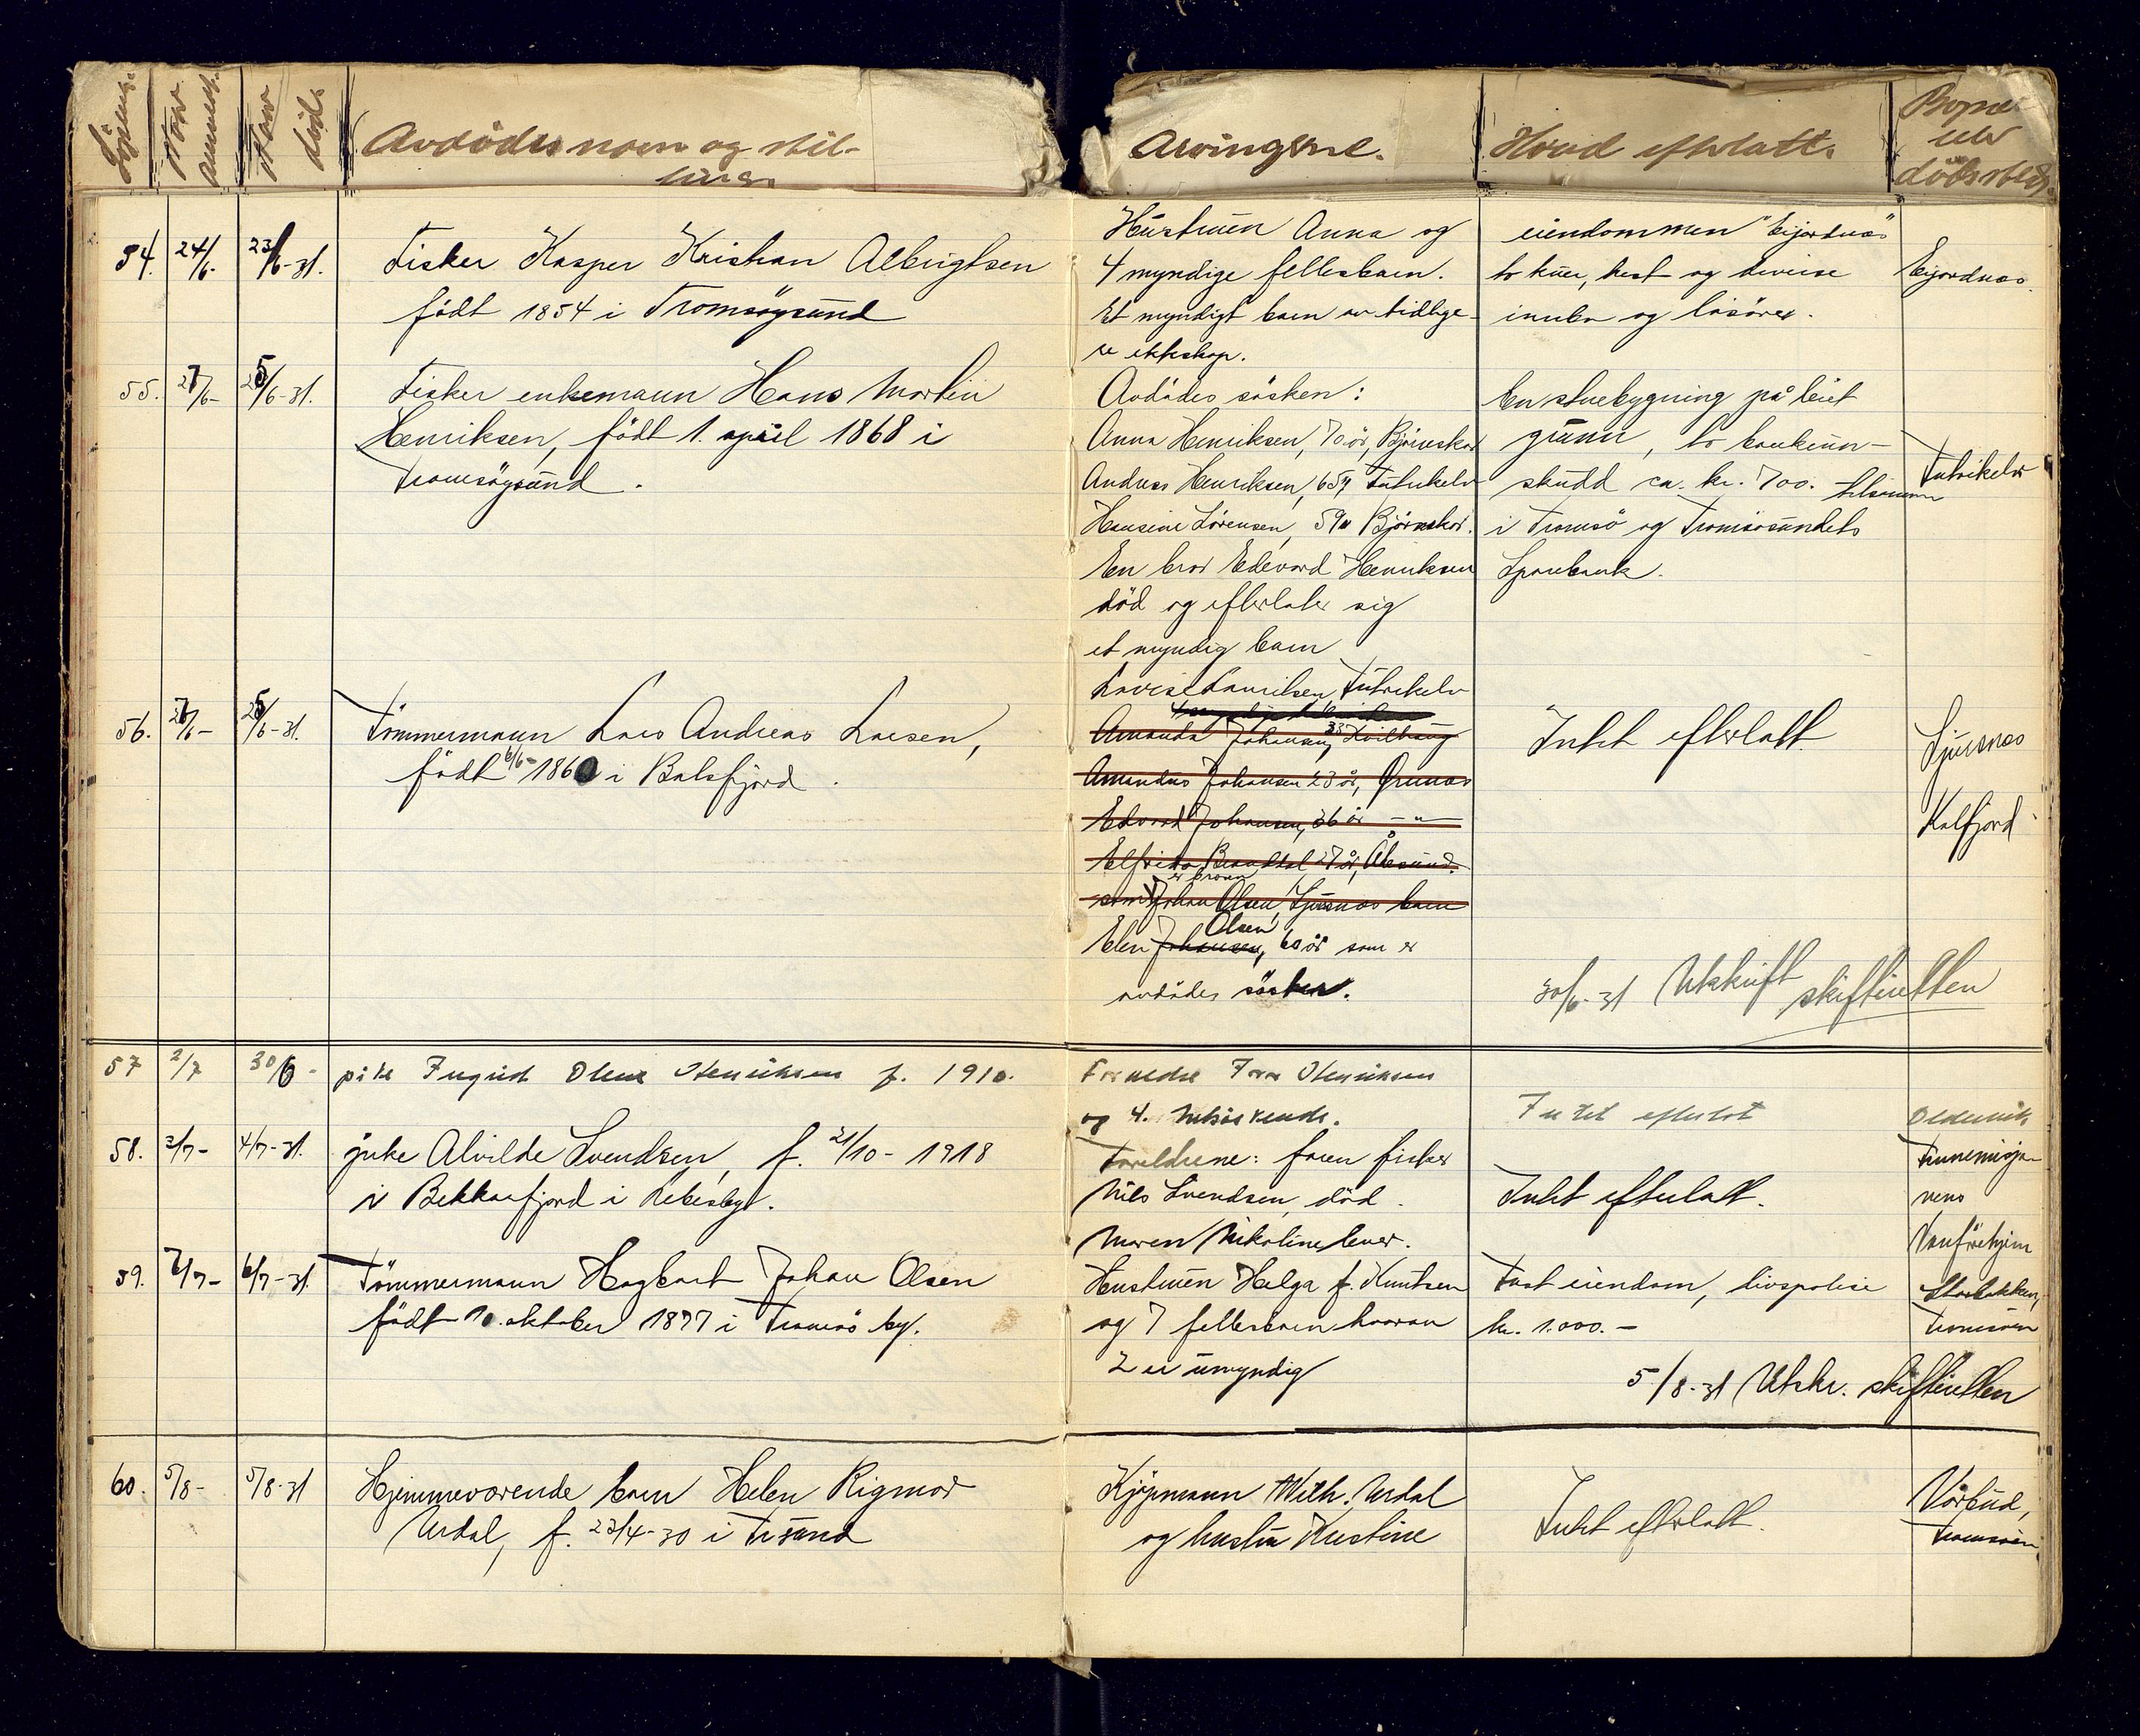 Avdödes navn og stil-
ling.
Arvingerne.
Hvad efterlatt.
Bopæl
eller
dödssted.
54.
24/6-
23/6-31.
Fisker Kasper Kristian Albrigtsen
födt 1854 i Tromsöysund
Hustruen Anna og
4 myndige fellesbarn.
Et myndigt barn av tidlige-
re ekteskap.
eiendommen "Eijordnæs"
to kuer, hest og diverse
innbo og lösöre.
Eijordnæs.
55.
27/6-
25/6-31.
Fisker enkemann Hans Martin
Henriksen, födt 1. april 1868 i
Tromsöysund.
Avdödes sösken:
Anna Henriksen, 70 år, Björneskar
Andreas Henriksen, 65 " Futrikelv
Hansine Lorensen, 59 " Björneskar.
En bror Edevard Henriksen
död og efterlater sig
et myndig barn
Lovise Lauritsen, Futrikelv
En stuebygning på leiet
grunn, to bankinn-
skudd ca. kr. 700. tilsammen
i Tromsö og Tromsösundets
Sparebank.
Futrikelv
56.
27/6-
25/6-31.
Tömmermann Lars Andreas Larsen,
födt 6/6- 1860 i Balsfjord.
Amanda Johansen, 33 Kvilhaug
Amandus Johansen 23 år, Grunnes
Edvard Johansen, 36 år - " -
Elfrida Brandtal 27 år, Ålesund.
er broren
samt Johan Olsen, Sjursnæs barn
Olsen
Elen Johansen, 60 år som er
avdödes sösken.
Intet efterlatt
Sjursnæs
Kalfjord
30/6-31 Utskrift skifteretten
57
2/7
30/6-
pike Ingrid Olene Henriksen f. 1910.
Foreldre Henriksen
og 4. helsöskende.
Intet efterlat
Oldervik
58.
3/7-
4/7-31.
pike Alvilde Svendsen, f. 21/10- 1918
i Bekkarfjord i Lebesby.
Foreldrene: faren fisker
Nils Svendsen, död.
Maren Nikoline lever.
Intet efterlatt.
Finnemisjo-
nens
Vanförehjem
59.
7/7-
6/7-31
Tömmermann Hagbart Johan Olsen
födt 10. oktober 1877 i Tromsö by.
Hustruen Helga f. Knutsen
og 7 fellesbarn hvorav
2 er umyndig
Fast eiendom, livspolise
kr. 1.000.-
Storbakken,
Tromsöen
5/8-31 Utskr. skifteretten
60.
5/8-
5/8-31
Hjemmeværende barn Helen Rigmor
Urdal, f. 23/4-30 i Tr.sund
Kjöpmann With. Urdal
og hustru Kristine
Intet efterlatt.
Vårbud,
Tromsöen